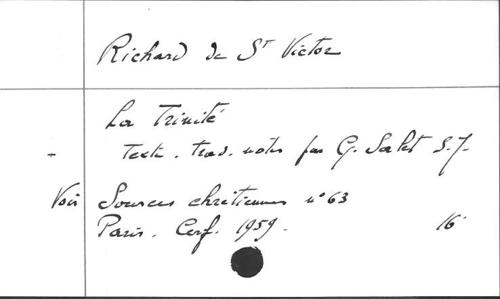 Richard de St Victor
La Trinité
- Texte. trad. notes par G. Salet S.J.
Voir Sources chrétiennes n° 63
Paris. Cerf. 1959. 16°